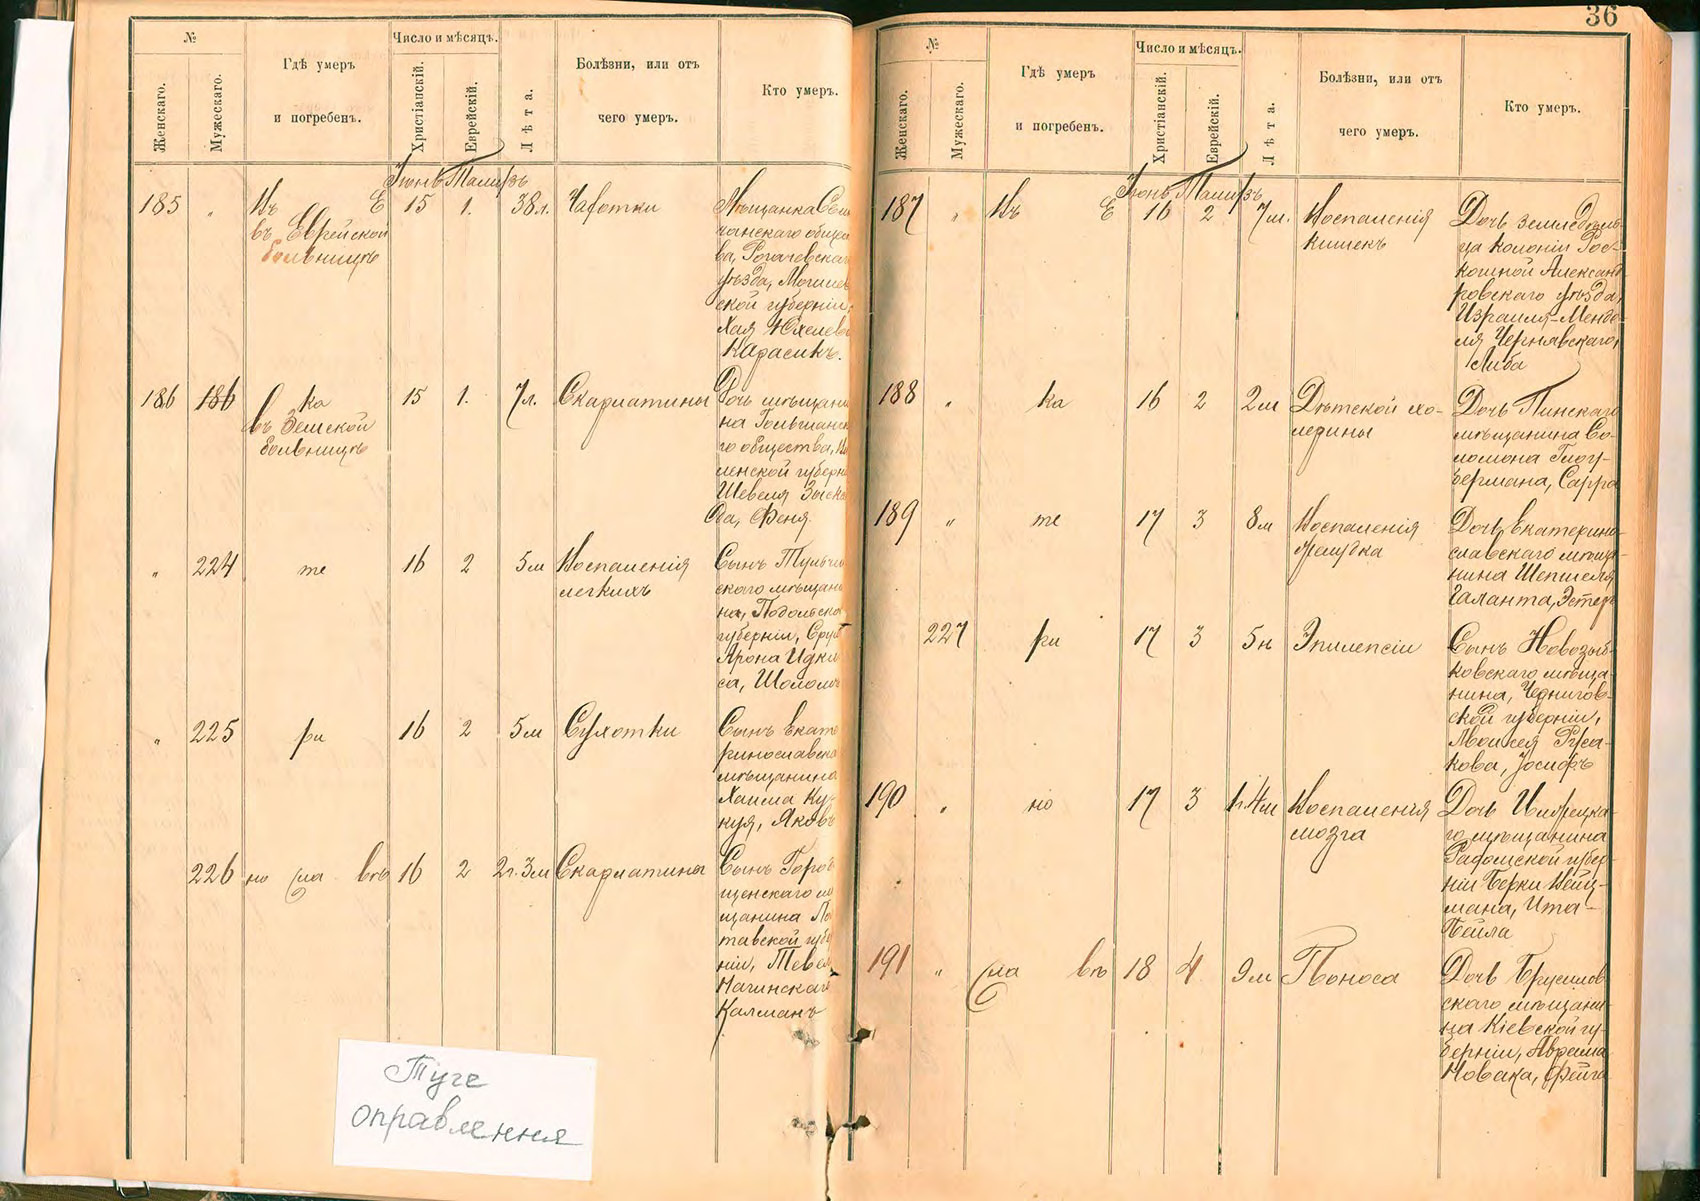 36
№
Женскаго.
Мужескаго.
Гдѣ умеръ
и погребенъ.
Число и мѣсяцъ.
Христіанскій.
Еврейскій.
Лѣта.
Болѣзни, или отъ
чего умеръ.
Кто умеръ.
Іюнь Тамузъ
185 " Въ Е 15 1. 38 л. Чахотки
въ Еврейской
больницѣ
Мѣщанка
Рогачевска
уѣзда, Могилев
ской губерніи,
Хая
Карасикъ.
186 186 ка 15 1. 7 л. Скарлатины
въ Земской
больницѣ
Дочь мѣщани
на
го общества, Ви
ленской губерн
Шевеля
ва, Феня.
" 224 те 16 2 5 м Воспаленія
легкихъ
Сынъ Тульчи
скаго мѣщани
на, Подольско
губерніи, Сруль
Арона
са, Шоломъ
" 225 ри 16 2 5 м Сухотки
Сынъ Екате
ринославска
мѣщанина
Хаима Ку
куя, Яковъ
226 но сла въ 16 2 2 г. 3 м Скарлатина
Сынъ Горо
щенскаго мѣ
щанина По
тавской губе
ніи, Тевел
Нагинскаг
Калманъ
Туге
оправлення
№
Женскаго.
Мужескаго.
Гдѣ умеръ
и погребенъ.
Число и мѣсяцъ.
Христіанскій.
Еврейскій.
Лѣта.
Болѣзни, или отъ
чего умеръ.
Кто умеръ.
Іюнь Тамузъ
187 " Въ Е 16 2 7 м. Воспаленія
кишекъ
Дочь земледѣль
ца колоніи Рос-
кошной Александ
ровскаго уѣзда,
Израиля-Менде
ля Чернявскаго,
Либа
188 " ка 16 2 2 м Дѣтской хо-
лерины
Дочь Пинскаго
мѣщанина Со-
ломона Глоу-
бермана, Сарра
189 " те 17 3 8 м Воспаленія
желудка
Дочь Екатерино-
славскаго мѣща-
нина Шепшеля
Галанта, Эстеръ
227 ри 17 3 5 н Эпилепсіи
Сынъ Новозыб-
ковскаго мѣща-
нина, Чернигов-
ской губерніи,
Моисея Руса-
кова, Іосифъ
190 " но 17 3 1 г. 4 м Воспаленія
мозга
Дочь
го мѣщанина
Радомской губер-
ніи Берки Вейц-
мана, Ита-
Бейла
191 " сла въ 18 4 9 м Поноса
Дочь Брусилов
скаго мѣщани-
на Кіевской гу-
берніи, Аврама
Новака, Фейга